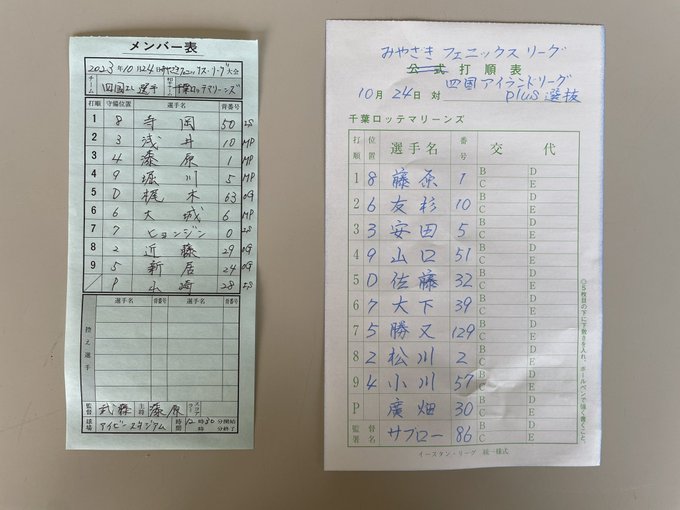 メンバー表
2023年10月24日 みやざきフェニックス・リーグ大会
チーム 四国IL選手 相手チーム 千葉ロッテマリーンズ
打順 守備位置 選手名 背番号
1 8 寺岡 50 IS
2 3 浅井 10 MP
3 4 漆原 1 MP
4 9 堀川 5 MP
5 D 梶木 63 OG
6 6 大城 6 MP
7 7 ヒョンジン 0 IS
8 2 近藤 29 OG
9 5 新居 24 OG
P 山崎 28 IS
控え選手
選手名 背番号 選手名 背番号
監督 武藤 主将 漆原 スコアラー
球場 アイビースタジアム 時間 12時30分開始
時 分終了
みやざき フェニックス リーグ
公式打順表
四国アイランドリーグ
10月24日 対 plus選抜
千葉ロッテマリーンズ
打順 位置 選手名 番号 交代
1 8 藤原 1 B C D E
2 6 友杉 10 B C D E
3 3 安田 5 B C D E
4 9 山口 51 B C D E
5 D 佐藤 32 B C D E
6 7 大下 39 B C D E
7 5 勝又 129 B C D E
8 2 松川 2 B C D E
9 4 小川 57 B C D E
P 廣畑 30 B C D E
監督署名 サブロー 86 B C D E
イースタン・リーグ 統一様式
◎5枚目の下に下敷きを入れ、ボールペンで強く書くこと。